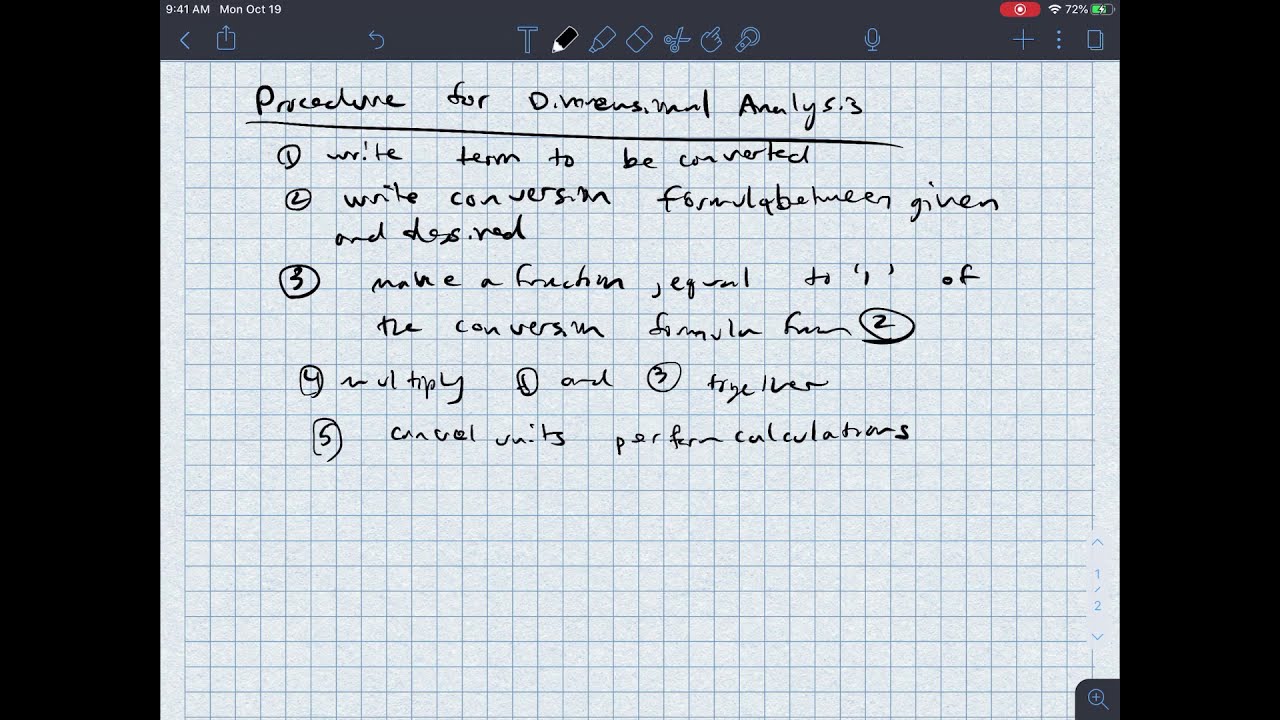 9:41 AM Mon Oct 19
72%
T
Procedure for Dimensional Analysis
① write term to be converted
② write conversion formula between given
and desired
③ make a fraction, equal to '1' of
the conversion formula from ②
④ multiply ① and ③ together
⑤ cancel units perform calculations
1
2